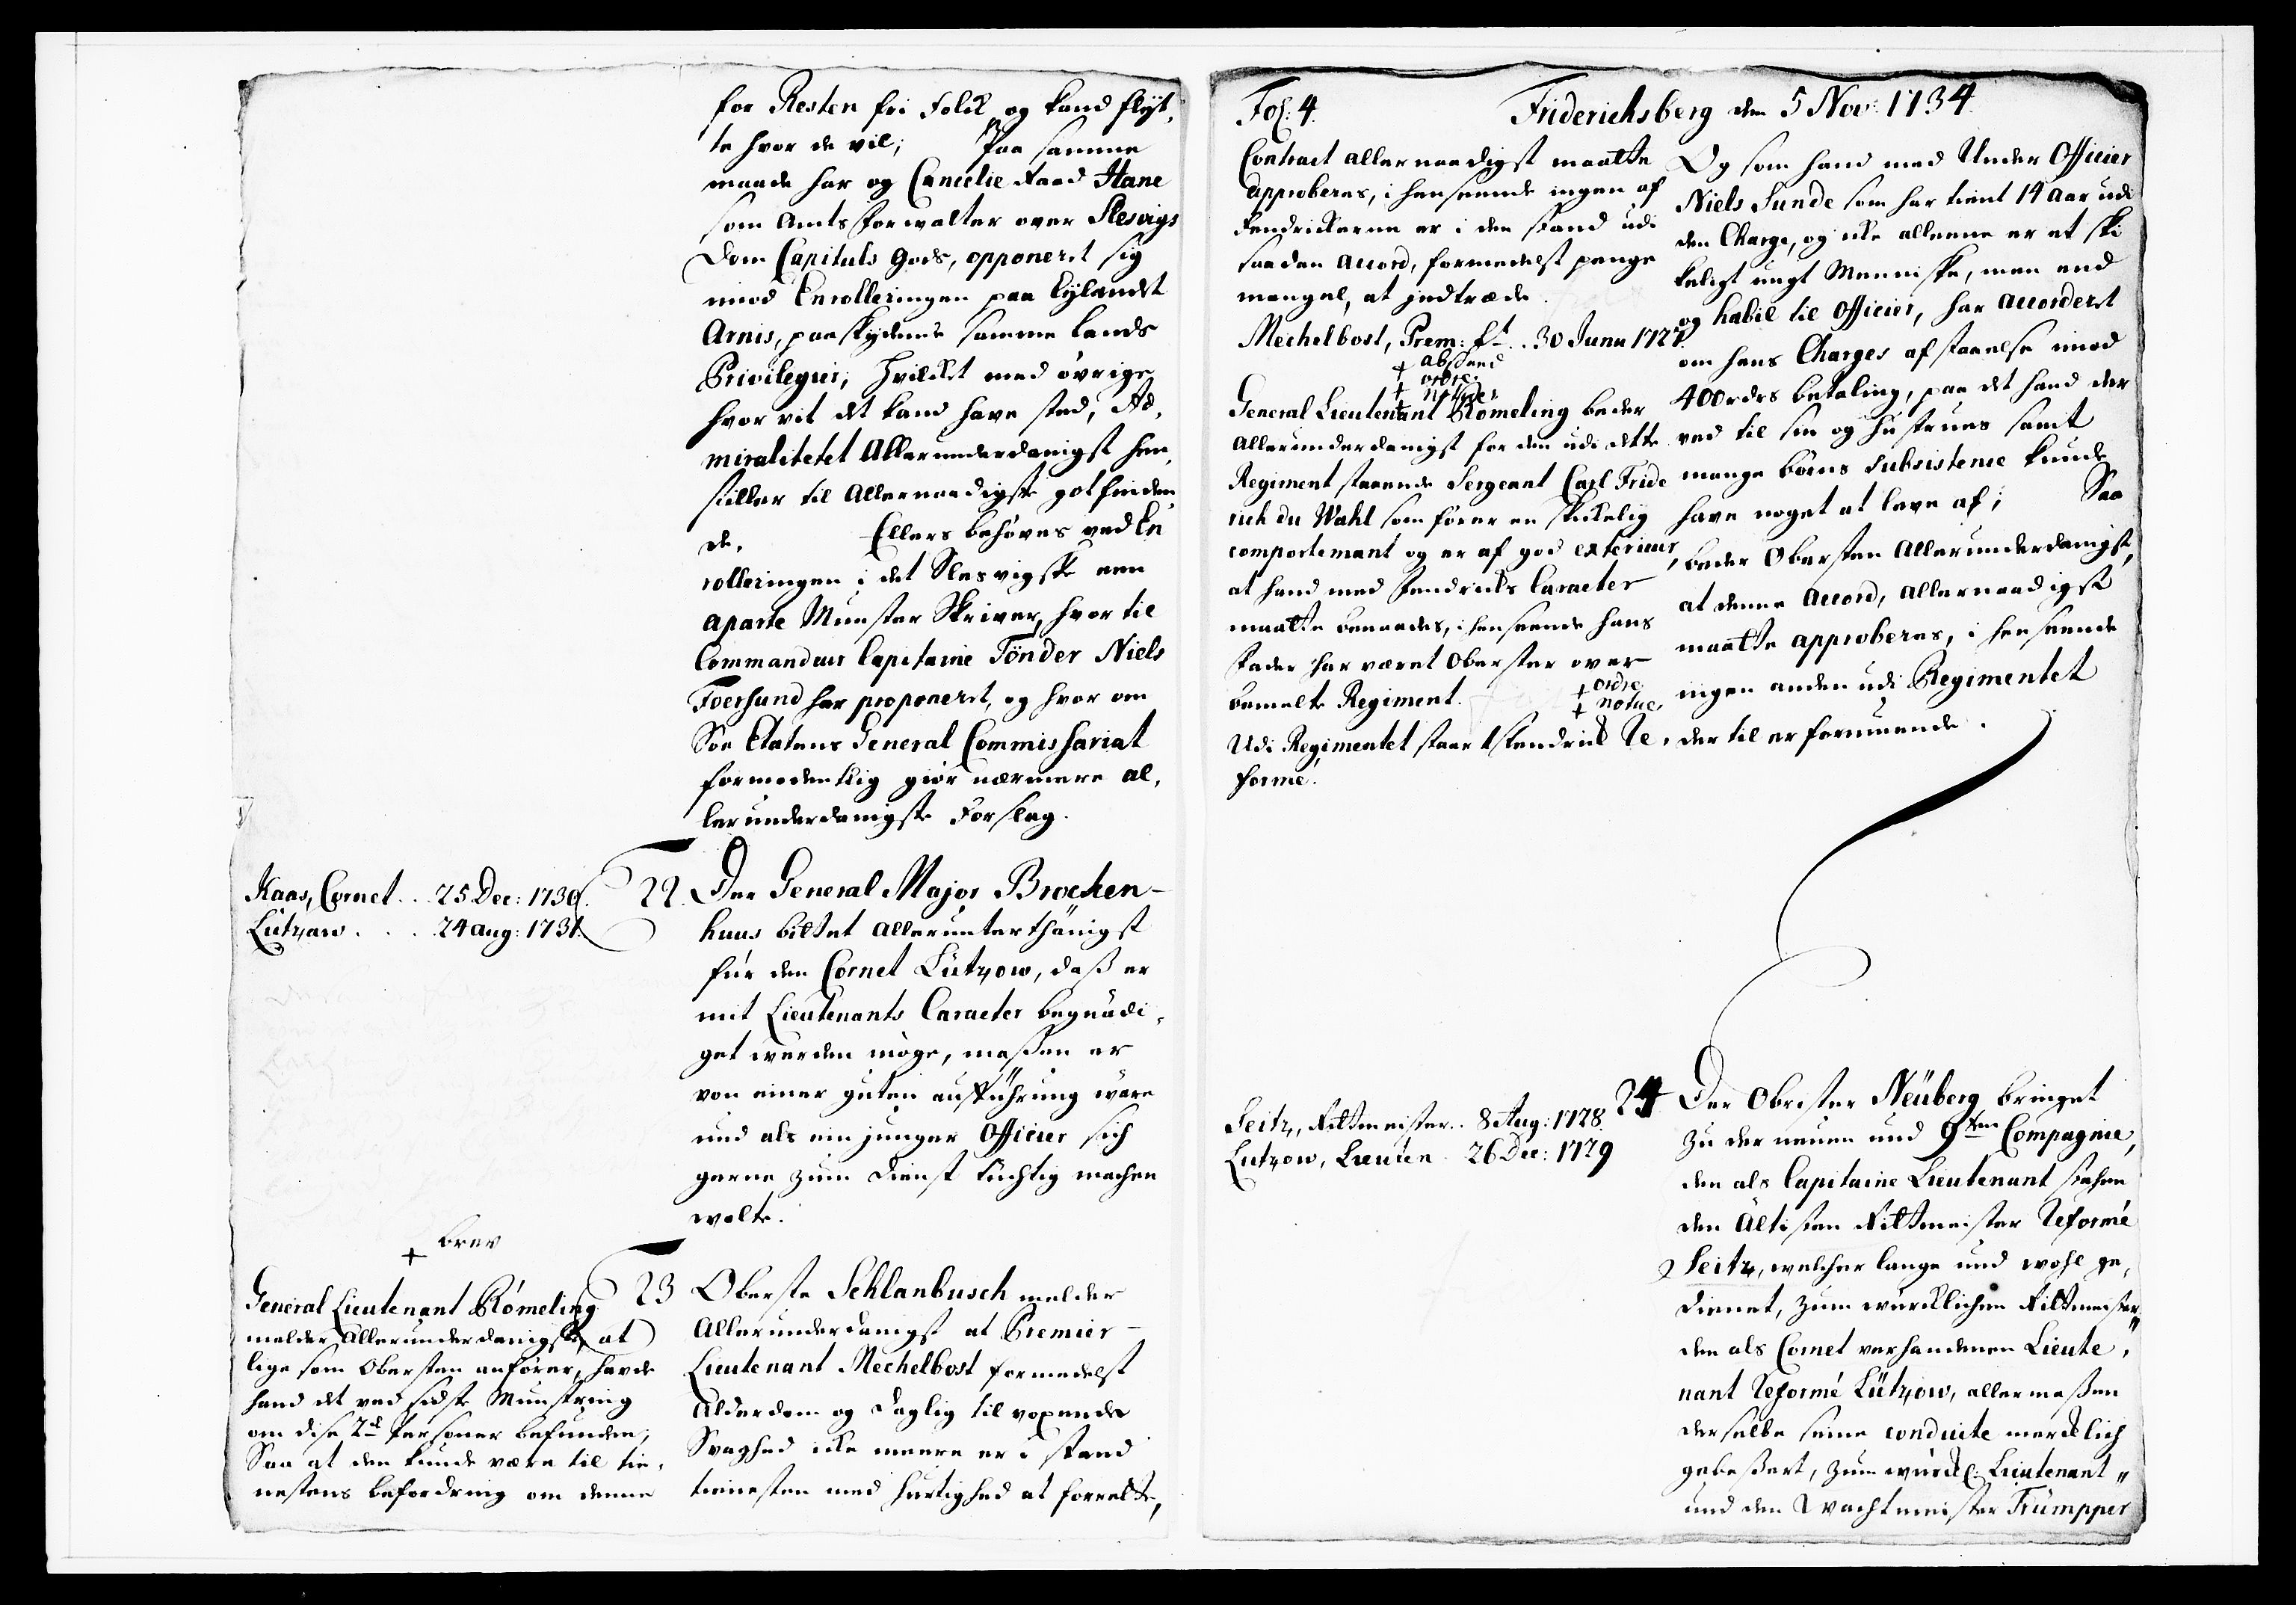 for Resten fri Folck og kand flyt,
te hvor de vil; Paa samme
maade har og Cancelie Raad Hane
som Amts Forwalter over Slesvigs
Dom Capituls Gods, opponeret sig
imod Enrolleringen paa Eylandet
Arnis, paaskydende samme Lands
Privilegier, hvilcket med övrige
hvor vit det kand have sted, Ad,
miralitetet Allerunderdanigst hen,
stiller til Allernaadigste gotfinden
de. Ellers behöves ved En
rolleringen i det Slesvigske een
aparte Mynster Skriver, hvor til
Commandeur Capitaine Tönder Niels
Foersund har proponeret, og hvor om
Söe Etatens General Commissariat
formodentlig giör nærmere al,
lerunderdanigste Forslag.
Kaas, Cornet . . 25 Dec: 1730.
Lützow . . . 24 Aug: 1731.
22. Der General Major Brocken-
huus bittet allerunterthänigst
für den Cornet Lützow, daß er
mit Lieutenants Caracter begnädi,
get werden möge, maßen er
von einer guten aufführung wäre
und als ein junger Officier sich
gerne zum Dienst tüchtig machen
wolte.
+ brev
General Lieutenant Römeling
melder Allerunderdanigst, at
lige som Obersten anförer, havde
hand det ved sidste Mynstring
om dise 2de Personer befunden,
Saa at den kunde være til tie,
nestens befordring om denne
23 Oberste Schlanbusch melder
Allerunderdanigst at Premier-
Lieutenant Mechelbost formedelst
Alderdom og daglig til voxende
Svaghed icke meere er i stand
tienesten med hurtighed at forrette,
Fol: 4. Friderichsberg den 5 Nov: 1734.
Contract allernaadigst maatte
approberes, i henseende ingen af
Fendrickerne er i den stand udi
saadan accord, formedelst penge
mangel, at indtræde.
Mechelbost, Prem: Lt. . . 30 Junii 1727.
+ absheed
+ ordre
+ notice
General Lieutenant Römeling beder
Allerunderdanigst for den udi dette
Regiment staaende Sergeant Carl Fride
rich du Wahl som förer en skickelig
comportemant og er af god exterieur,
at hand med Fendricks Caracter
maatte benaades, i henseende hans
Fader har været Oberster over
bemelte Regiment.
+ ordre
+ notice
Udi Regimentet staar 1 Fendrick Re,
formé.
Og som hand med Under Officier
Niels Sunde som har tient 14 Aar udi
den Charge, og icke alleene er et ski
keligt ungt Menniske, men end
og habil til Officier, har accorderet
om hans Charges afstaaelse imod
400 rdrs betaling, paa det hand der
ved til sin og hustrues samt
mange börns subsistence kunde
have noget at leve af; Saa
beder Obersten Allerunderdanigst,
at denne accord, allernaadigst
maatte approberes, i henseende
ingen anden udi Regimentet
der til er formuende.
Seitz, Rittmeister. . 8 Aug: 1728.
Lutzow, Lieuten. 26 Dec: 1729
24 Der Obrister Neüberg bringet
zu der neuen und 9ten Compagnie,
den als Capitaine Lieutenant stehen
den ältisten Rittmeister Reformé
Seitz, welcher lange und wohl ge,
dienet, zum würcklichen Rittmeister,
den als Cornet verhandenen Lieute,
nant Reformé Lützow, allermaßen
derselbe seine conduite mercklich
gebeßert, zum würckl: Lieutenant,
und den Wachtmeister Trümpper